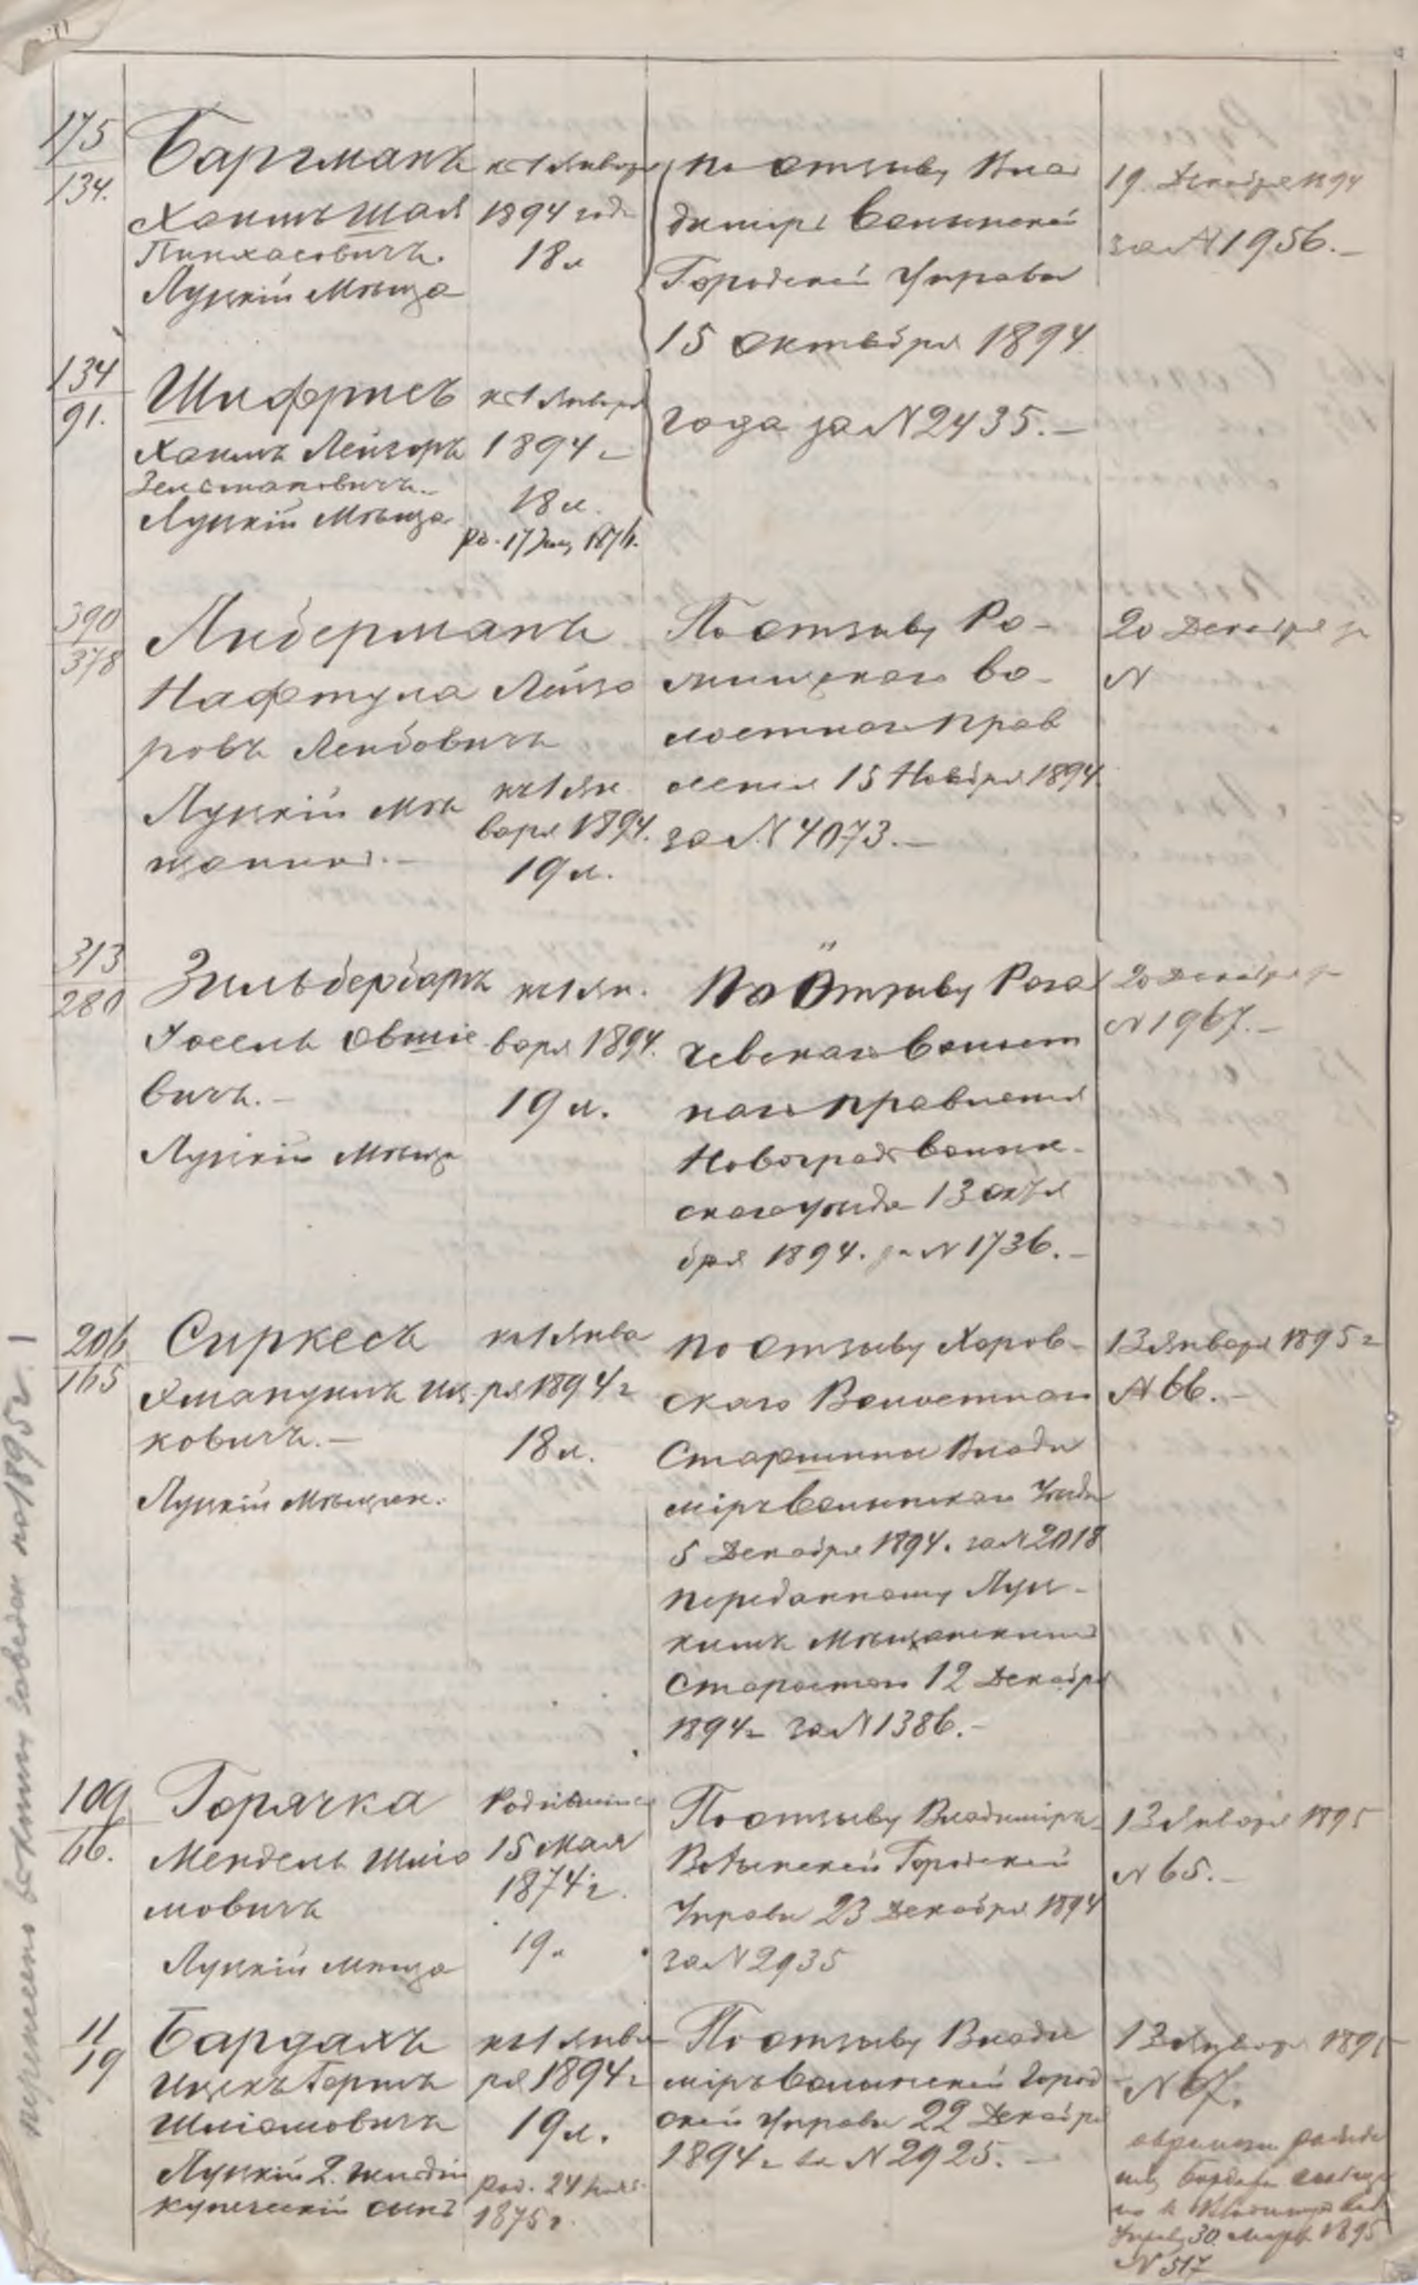 175
134.
Баргманъ
Хаимъ Шая
Пинхасовичъ.
Луцкій Мѣща
къ 1 Января
1894 года
18 л
По отзыву Вла
диміръ Волынской
Городской Управы
15 октября 1894
года за № 2435.—
19 Декабря 1894
за № 1956.—
134
91.
Шифрисъ
Хаимъ Лейзоръ
Луцкій Мѣща
къ 1 Января
1894 г
18 л.
ро. 17 1876.
390
378
Либерманъ
Нафтула Лейзо
ровъ Лейбовичъ
Луцкій Мѣ
щанинъ.—
къ 1 Ян
варя 1894.
19 л.
По отзыву Ро-
жищскаго во-
лостного прав
ленія 15 Ноября 1894.
за № 4073.—
20 Декабря за
№
313
280
Зильберборъ
Іосель Овшіе
вичъ.—
Луцкій Мѣща
къ 1 Ян.
варя 1894.
19 л.
По Отзыву Рога
чевскаго Волост
наго правленія
Новоградволын-
скаго уѣзда 13 октя
бря 1894. за № 1736.—
20 Декабря за
№ 1967.—
206
165
Сиркесъ
Хманунилъ Иц
ковичъ.—
Луцкій Мѣщан.
къ 1 Янва
ря 1894 г
18 л.
По отзыву Хоров-
скаго Волостнаго
Старшины Влади
міръ Волынскаго Уѣзда
5 Декабря 1894. за № 2018
переданному Луц-
кимъ Мѣщанскимъ
Старостою 12 Декабря
1894 г за № 1386.—
13 Января 1895 г
№ 66.—
109
66.
Горячка
Мендель Шліо
мовичъ
Луцкій мѣща
Родившійся
15 Мая
1874 г.
19 л
По отзыву Владиміръ
Волынской Городской
Управы 23 Декабря 1894
за № 2935
13 Января 1895
№ 65.—
11
19
Бардахъ
Ицекъ Гершъ
Шліомовичъ
Луцкій 2. гильдіи
купеческій сынъ
къ 1 Янва
ря 1894 г
19 л.
род. 24
1875 г.
По отзыву Влади
міръ Волынской Город
ской Управы 22 Декабря
1894 г за № 2925.—
13 Января 1895
№ 67.
о времени рожде
нія Бардаха сообще
но
Управу 30 Марта 1895
№ 517
перенесено въ книгу заведен на 1895 г.